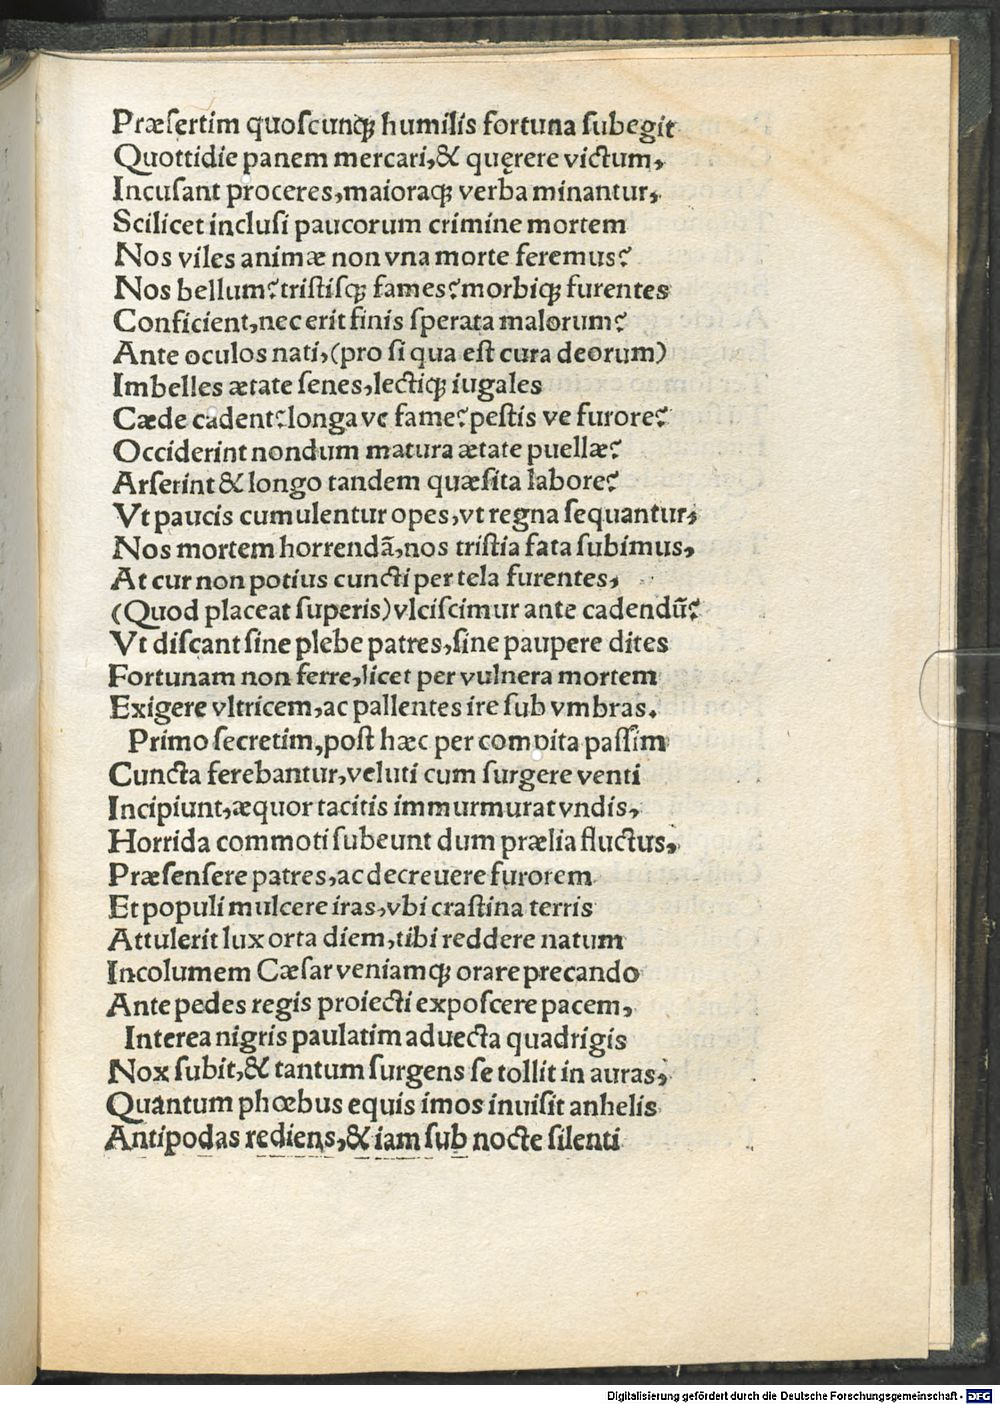 Præſertim quoſcunqꝫ humilis fortuna ſubegit
Quottidie panem mercari,& quęrere victum,
Incuſant proceres,maioraqꝫ verba minantur,
Scilicet incluſi paucorum crimine mortem
Nos viles animæ non vna morte feremus?
Nos bellum?triſtiſqꝫ fames?morbiqꝫ furentes
Conficient,nec erit finis ſperata malorum?
Ante oculos nati,(pro ſi qua eſt cura deorum)
Imbelles ætate ſenes,lectiqꝫ iugales
Cæde cadent?longa ve fame?peſtis ve furore?
Occiderint nondum matura ætate puellæ?
Arſerint & longo tandem quæſita labore?
Vt paucis cumulentur opes,vt regna ſequantur,
Nos mortem horrendã,nos triſtia fata ſubimus,
At cur non potius cuncti per tela furentes,
(Quod placeat ſuperis)vlciſcimur ante cadendũ?
Vt diſcant ſine plebe patres,ſine paupere dites
Fortunam non ferre,licet per vulnera mortem
Exigere vltricem,ac pallentes ire ſub vmbras.
Primo ſecretim,poſt hæc per compita paſſim
Cuncta ferebantur,veluti cum ſurgere venti
Incipiunt,æquor tacitis immurmurat vndis,
Horrida commoti ſubeunt dum prælia fluctus,
Præſenſere patres,ac decreuere furorem
Et populi mulcere iras,vbi craſtina terris
Attulerit lux orta diem,tibi reddere natum
Incolumem Cæſar veniamqꝫ orare precando
Ante pedes regis proiecti expoſcere pacem,
Interea nigris paulatim aduecta quadrigis
Nox ſubit,& tantum ſurgens ſe tollit in auras,
Quantum phœbus equis imos inuiſit anhelis
Antipodas rediens,& iam ſub nocte ſilenti
Digitalisierung gefördert durch die Deutsche Forschungsgemeinschaft - DFG